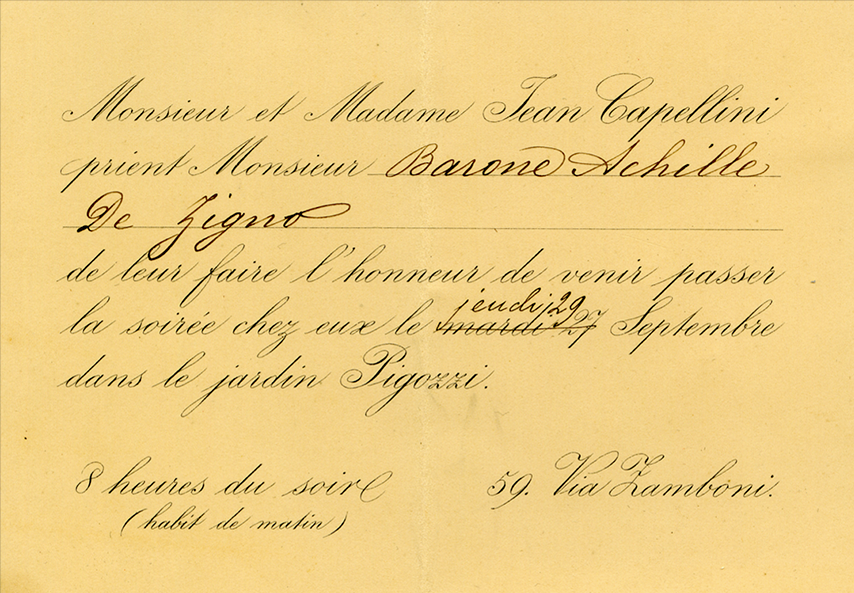 Monsieur et Madame Jean Capellini
prient Monsieur Barone Achille
De Zigno
de leur faire l'honneur de venir passer
jeudi 29
la soirée chez eux le mardi 27 Septembre
dans le jardin Pigozzi.
8 heures du soir
59. Via Zamboni.
(habit de matin)